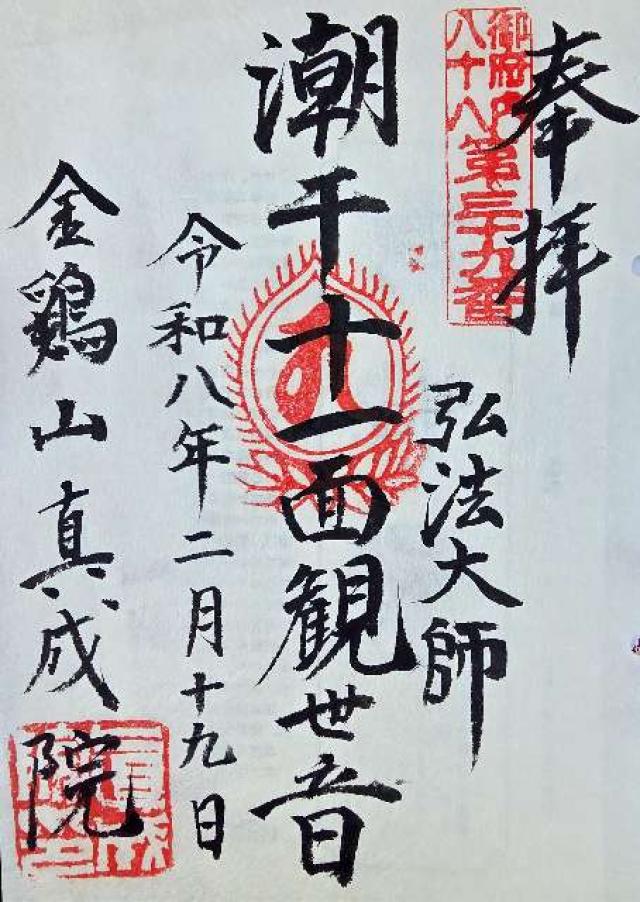 奉拝
御府内
八十八第三十九番
弘法大師
潮干十一面観世音
令和八年二月十九日
金鶏山真成院